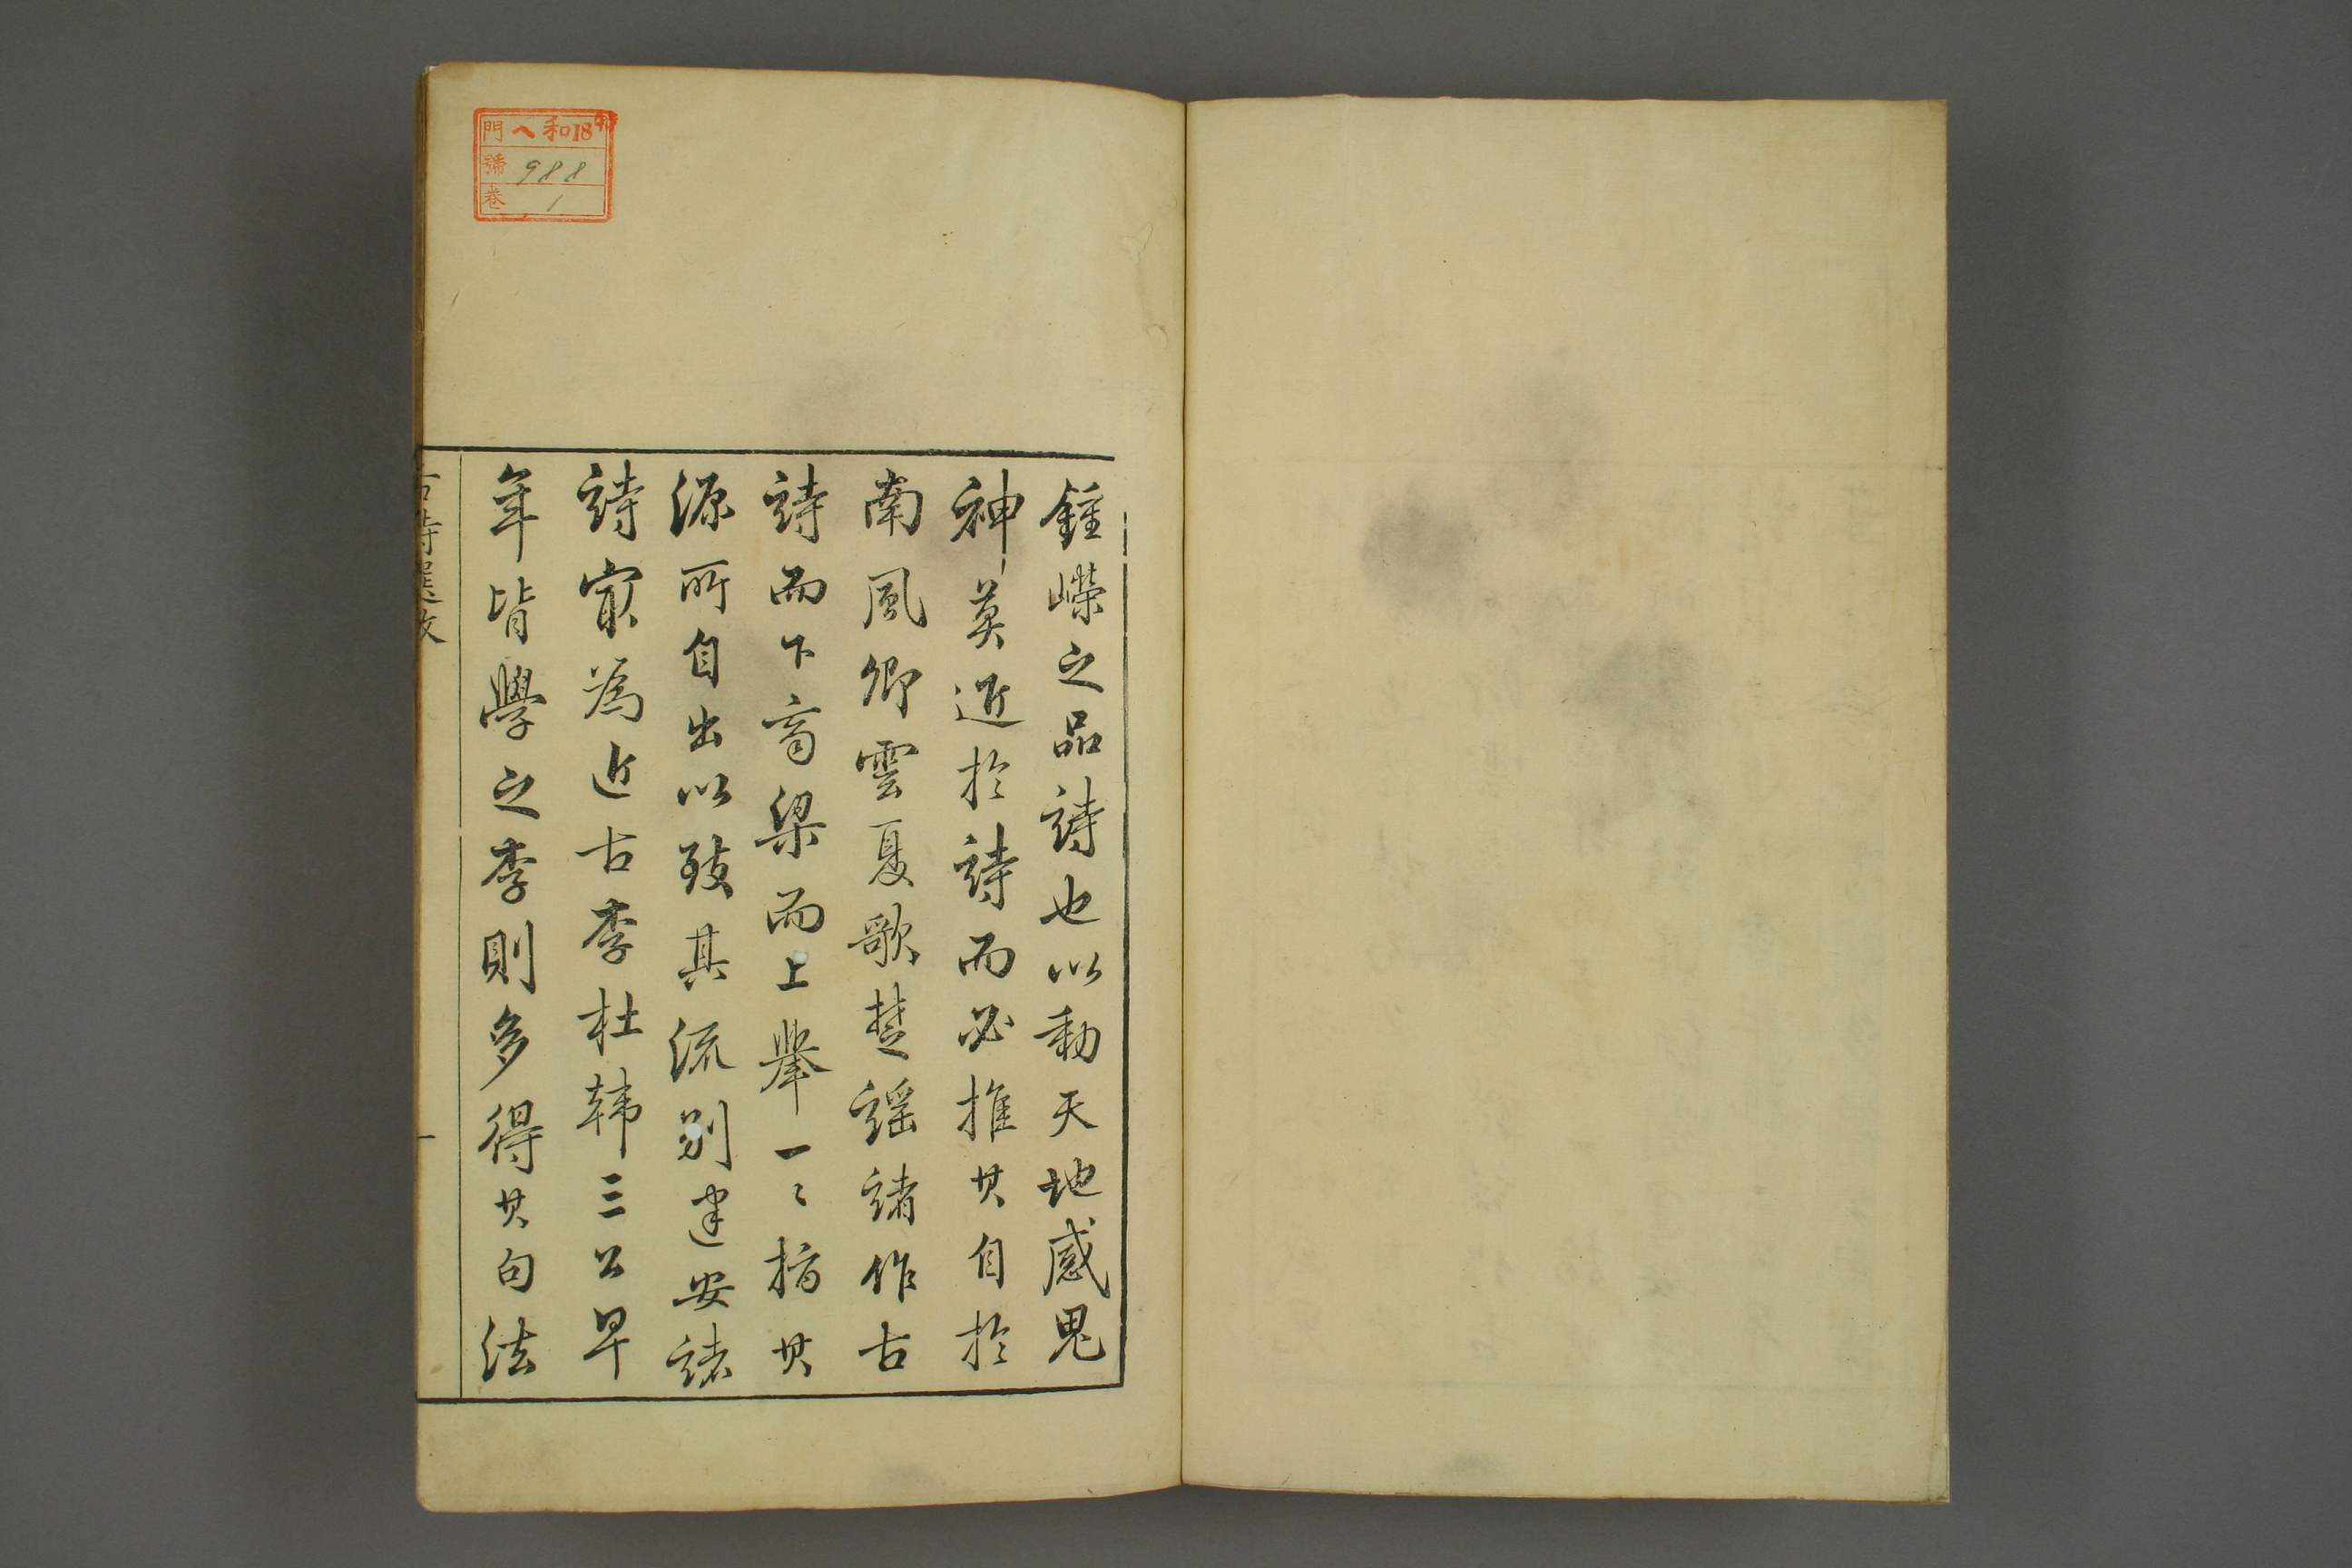 鍾嶸之品詩也以動天地感鬼
神莫近於詩而必推其自於
南風卿雲夏歌楚謠諸作古
詩而下齊梁而上舉一〻指其
源所自出以致其流別建安諸
詩㝡為近古李杜韓三公早
年皆學之李則多得其句法
古詩選敘
一
門 ヘ和18
號 988
卷 1